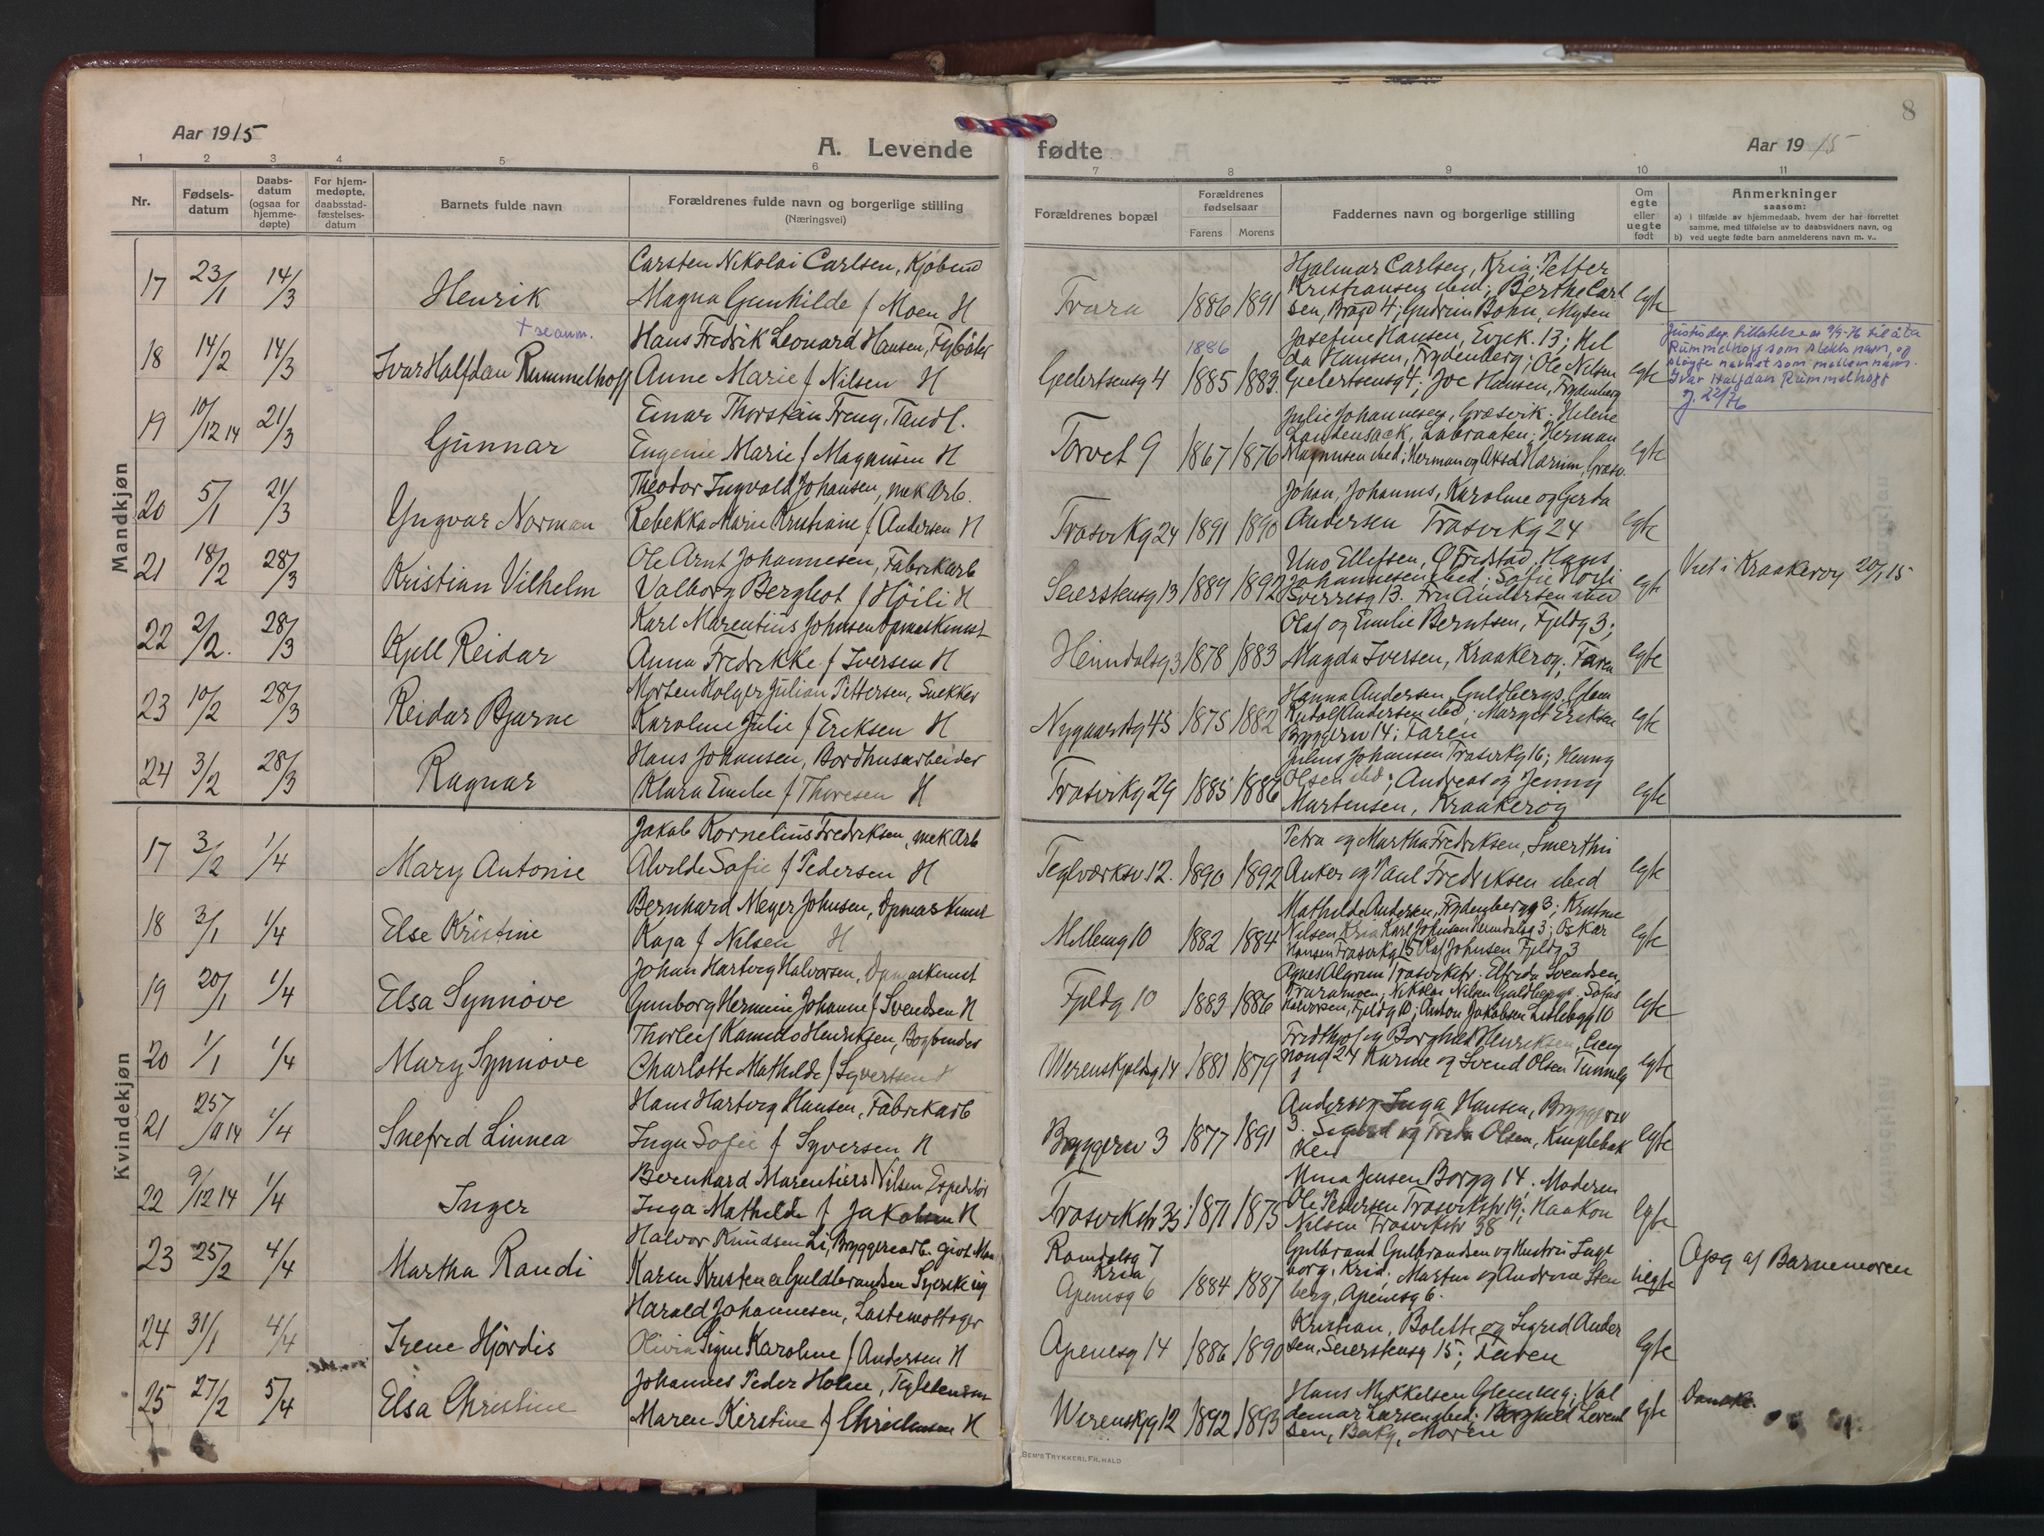 Aar 1915
A. Levende
1 2 3 4 5 6
Nr. Fødsels-datum Daabs-datum (ogsaa for hjemme-døpte) For hjem-medøpte, daabsstad-fæstelses-datum Barnets fulde navn Forældrenes fulde navn og borgerlige stilling (Næringsvei)
Mandkjøn
Carsten Nikolai Carlsen, Kjøbmd
17 23/1 14/3 Henrik Magna Gunhilde f Moen H
+ se anm.
Hans Fredrik Leonard Hansen, Fyrbøter
18 14/2 14/3 Ivar Halfdan Rummelhoff Anne Marie f Nilsen H
Einar Thorstein Treng, Tandl.
19 10/12 14 21/3 Gunnar Eugenie Marie f Magnusen H
Theodor Ingvald Johansen, mek Arb.
20 5/1 21/3 Yngvar Norman Rebekka Marie Kristiane f Andersen H
Ole Arnt Johannesen, Fabrikarb
21 18/2 28/3 Kristian Vilhelm Valborg Berghot f Höili H
Karl Marentius Johnsen Opmaskinist
22 2/2. 28/3 Kjell Reidar Anna Fredrikke f Iversen H
Morten Holger Julian Pettersen, Snekker
23 10/2 28/3 Reidar Bjarne Karoline Julie f Eriksen H
Hans Johansen, Bordhusarbeider
24 3/2 28/3 Ragnar Klara Emilie f Thoresen H
Kvindekjøn
Jakob Kornelius Fredriksen, mek Arb
17 3/2 1/4 Mary Antonie Alvilde Sofie f Pedersen H
Bernhard Meyer Johnsen, Opmaskinist
18 3/1 1/4 Else Kristine Kaja f Nilsen H
Johan Hartvig Halvorsen, Opmaskinist
19 20/1 1/4 Elsa Synnöve Gunborg Hermine Johanne f Svendsen H
Thorleif Kamillo Henriksen, Bogbinder
20 1/1 1/4 Mary Synnöve Charlotte Mathilde f Syvertsen H
Hans Hartvig Hansen, Fabrikarb
21 25/11 14 1/4 Snefrid Linnea Inga Sofie f Syversen H
Bernhard Marentius Nilsen Expeditör
22 9/12 14 1/4 Inger Inga Mathilde f Jakobsen H
Halvor Knudsen Li, Bryggeriarb. givt Man
23 25/2 4/4 Martha Randi Karen Kristine Guldbrandsen Syerske ug
Harald Johannesen, Lastemottager
24 31/1 4/4 Irene Hjördis Olivia Signe Karoline f Andersen H
Johannes Peder Holm,
25 27/2 5/4 Elsa Christine Maren Kirstine f Christensen H
8
fødte
Aar 1915
7 8 9 10 11
Forældrenes bopæl Forældrenes fødselsaar Farens Morens Faddernes navn og borgerlige stilling Om egte eller uegte født Anmerkninger
saasom:
a) i tilfælde av hjemmedaab, hvem der har forrettet samme, med tilføielse av to daabsvidners navn, og
b) ved uegte fødte barn anmelderens navn m. v..
Hjalmar Carlsen, Kria; Petter
Kristiansen ibid; Berthe Carl
Trara 1886 1891 sen, Brogd 4; Gudrun Bohn, Mysen egte
1886
Josefine Hansen, Evjek. 13; Hil
da Hansen, Frydenberg; Ole Nilsen
Geelertsensg 4 1885 1883 Geelertsensg 4; Joe Hansen, Frydenberg egte
Justisdep. tillatelse av 9/9-76 til å ta
Rummelhoff som slektsnavn, og
sløyfe navnet som mellomnavn.
Ivar Halfdan Rummelhoff
Julie Johannesen, Græsvik; Helene
Lautensack, Labraaten; Herman
Torvet 9 1867 1876 Magnusen ibid; Herman og Aksel Harim, Græsv. egte
Johan, Johannes, Karoline og Gerda
Trosvikg 24 1891 1890 Andersen Trosvikg 24 egte
Uno Ellefsen, Ø Fredstad; Hans
Johannesen ibid; Sofie Höili
Seierstensg 13 1889 1892 Sverresg 13. Fru Andersen ibid egte Viet i Kraakeroy 20/1 15
Olaf og Emilie Berntsen, Fjeldg 3;
Heimdalsg 3 1878 1883 Magda Iversen, Kraakerog; Faren egte
Hanna Andersen, Guldbergs Glem
Rudolf Andersen ibid; Margit Eriksen
Nygaardsg 45 1875 1882 Byggeriv 14; Faren egte
Julius Johansen Trosvikg 16; Henny
Olsen ibid; Andreas og Jenny
Trosvikg 29 1885 1886 Martinsen, Kraakerog egte
Petra og Martha Fredriksen, Smerthu
Teglværksv 12. 1890 1892 Anker og Paul Fredriksen ibid egte
Mathilde Andersen, Frydenbergg 3; Kristine
Nilsen Kria Karl Johnsen Heimdalsg 3; Oskar
Mellemg 10 1882 1884 Hansen Trosvikg 15 Olaf Johnsen Fjeldg 3 egte
Agnes Algrim Trosvikstr. Elfrida Svendsen,
Traramoen; Nikolai Nilsen Guldbergs; Sofus
Fjeldg 10 1883 1886 Halvorsen, Fjeldg 10; Anton Jakobsen Lillebgg 10 egte
Fridthjof og Borghild Henriksen,
Werenskjoldsg 14 1881 1879 24 Karine og Svend Olsen Tunnelg egte
Anders og Inga Hansen, Bryggeriv
3. Sigurd og Frida Olsen, Kniplebak
Bryggeriv 3 1877 1891 ken egte
Mina Jensen Borgg 14. Moderen
Ole Pedersen Trosvikstr 19; Haakon
Trosvikstr 35 1871 1875 Nilsen Trosvikstr 38 egte
Romdalsg 7 Kria Gulbrand Gulbrandsen og Hustru Inge
borg, Kria; Martin og Andrine Sten
Apenesg 6 1884 1887 berg, Apenesg 6. uegte Opg af Barnemoren
Kristian, Bolette og Sigrid Ander
Apenesg 14 1886 1890 sen, Seierstensg 15; Faren egte
Hans Mykkelsen Glemmg; Val
demar Larsen ibid; Borghild
Werenskg 12 1892 1893 sen, Bakg, Moren egte Danske
BEM'S TRYKKERI, FR.HALD